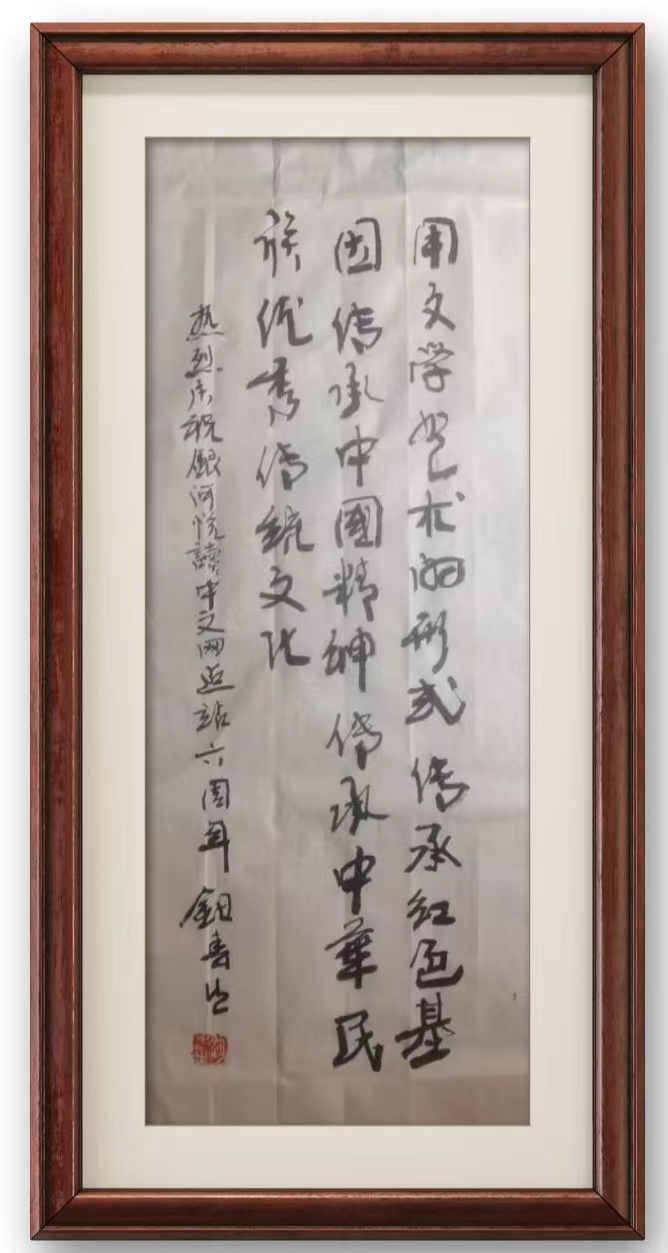 用文学艺术的形式传承红色基
因传承中國精神传承中華民
族优秀传統文化
热烈庆祝银河悦讀中文网建站六周年